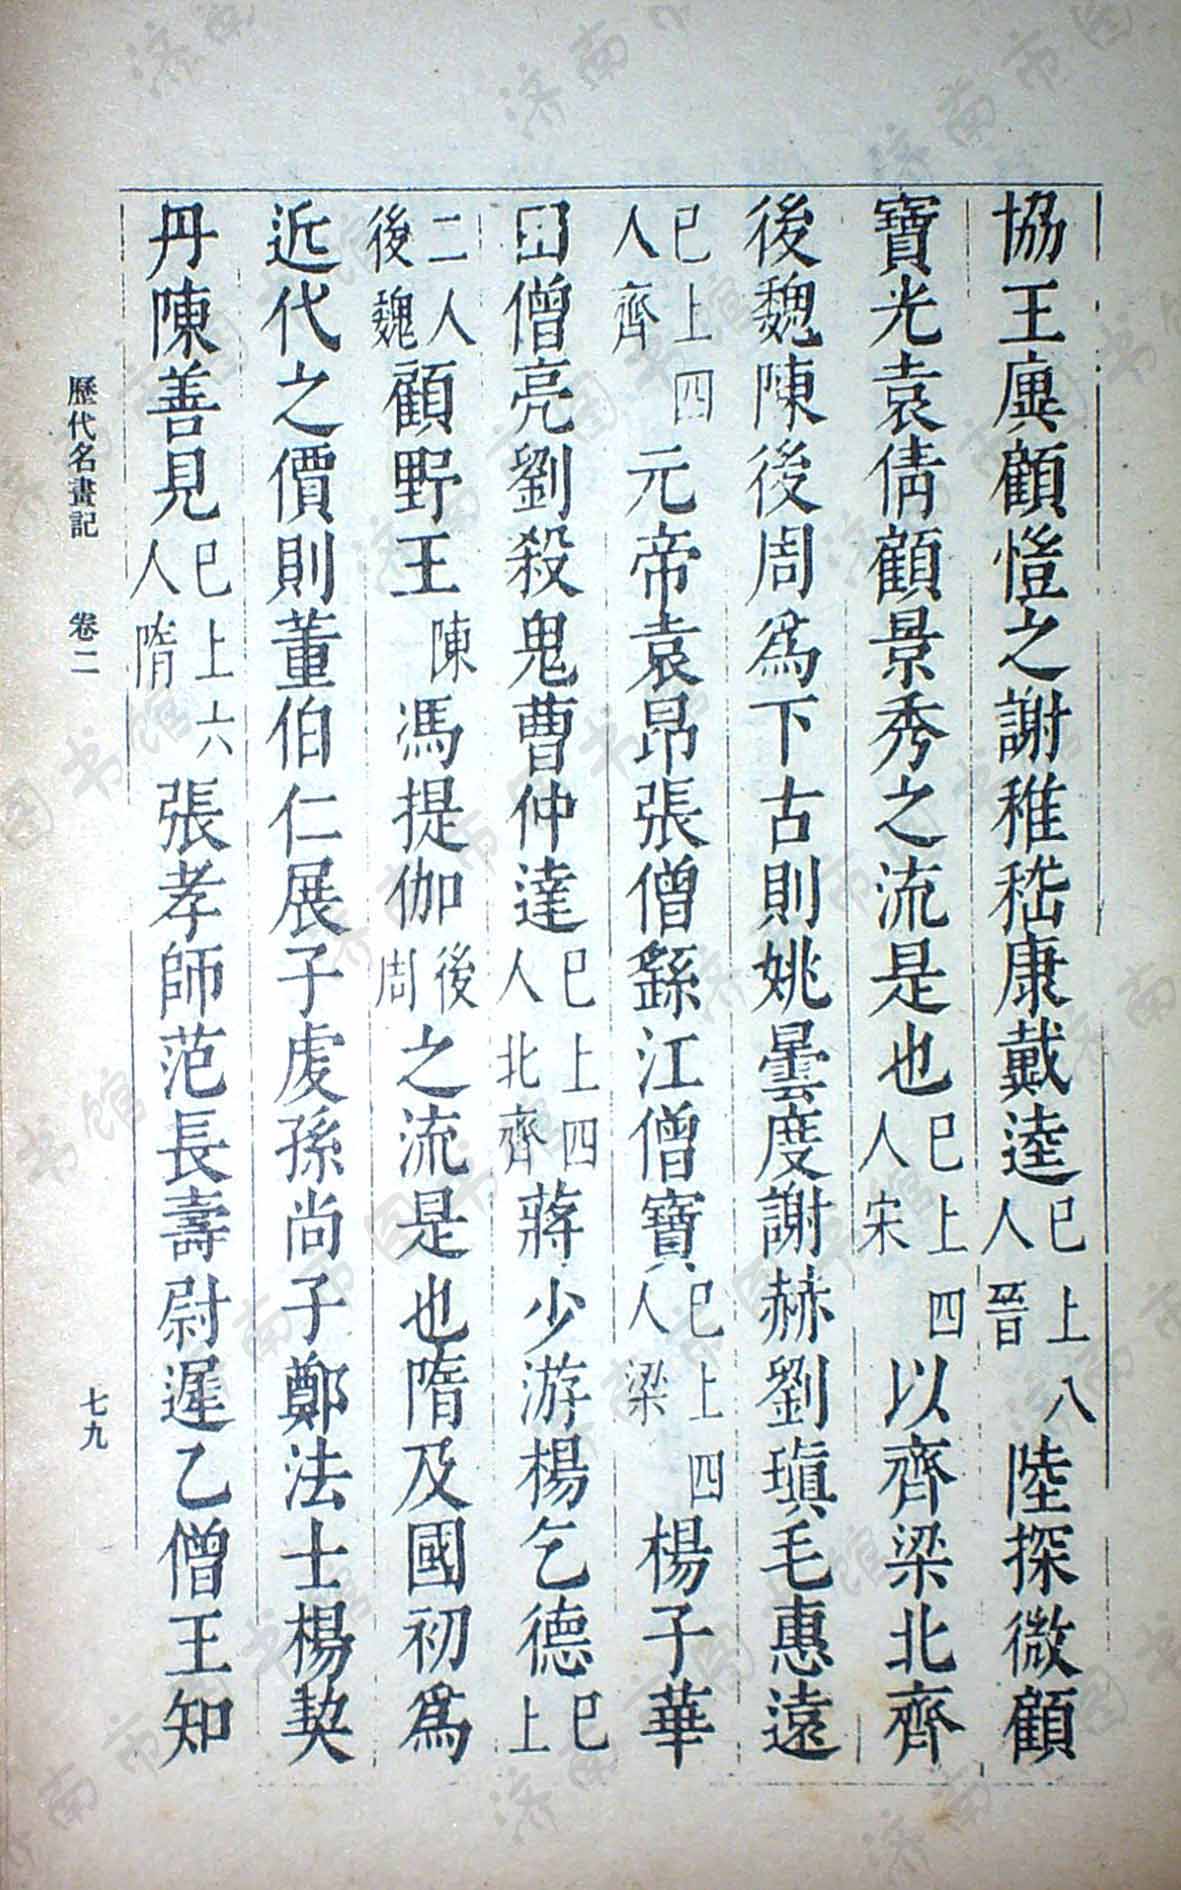 協王廙顧愷之謝稚嵇康戴逵已上八人晉陸探微顧
寶光袁倩顧景秀之流是也已上四人宋以齊梁北齊
後魏陳後周爲下古則姚曇度謝赫劉瑱毛惠遠
已上四人齊元帝袁昂張僧繇江僧寶已上四人梁楊子華
田僧亮劉殺鬼曹仲達已上四人北齊蔣少游楊乞德已上
二人後魏顧野王陳馮提伽後周之流是也隋及國初爲
近代之價則董伯仁展子虔孫尚子鄭法士楊契
丹陳善見已上六人隋張孝師范長壽尉遲乙僧王知
歷代名畫記 卷二 七九